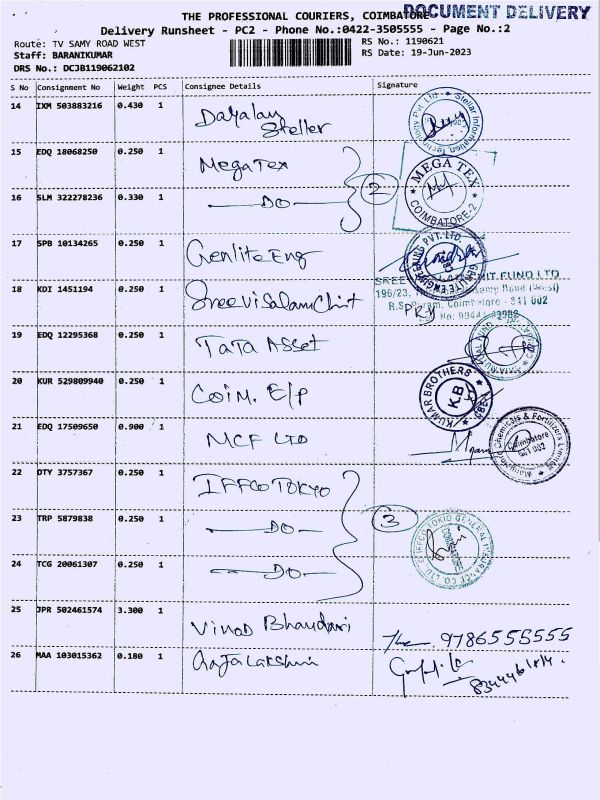 THE PROFESSIONAL COURIERS, COIMBATORE
DOCUMENT DELIVERY
Delivery Runsheet - PC2 - Phone No.:0422-3505555 - Page No.:2
Route: TV SAMY ROAD WEST
RS No.: 1190621
Staff: BARANIKUMAR
RS Date: 19-Jun-2023
DRS No.: DCJB119062102
S No Consignment No Weight PCS Consignee Details Signature
14 IXM 503883216 0.430 1 Dayalan Steller
15 EDQ 18068250 0.250 1 MegaTex
MEGA TEX
COIMBATORE-2
16 SLM 322278236 0.330 1 DO
2
17 SPB 10134265 0.250 1 Genlite Eng
18 KDI 1451194 0.250 1 Sreevisalam Chit
SREE CHIT FUND LTD
196/23, Samy Road (West)
R.S.Puram, Coimbatore - 641 002
19 EDQ 12295368 0.250 1 TATA Asset
20 KUR 529809940 0.250 1 Coim. E/P
KUMAR BROTHERS
K.B
CBE
21 EDQ 17509650 0.900 1 MCF LTD
Mangalore Chemicals & Fertilizers Limited
Coimbatore
641 002
22 DTY 3757367 0.250 1 IFFCO TOKYO
23 TRP 5879838 0.250 1 DO
3
IFFCO TOKIO GENERAL INSURANCE CO. LTD.
24 TCG 20061307 0.250 1 DO
25 JPR 502461574 3.300 1 Vinod Bhandari
9786555555
26 MAA 103015362 0.180 1 Rajalakshmi